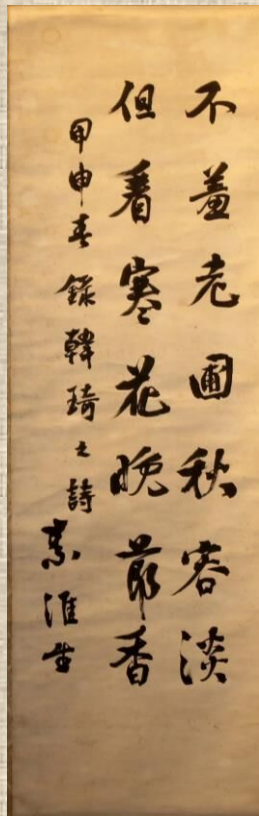 不羞老圃秋容淡
但看寒花晚節香
甲申春錄韓琦之詩 淮